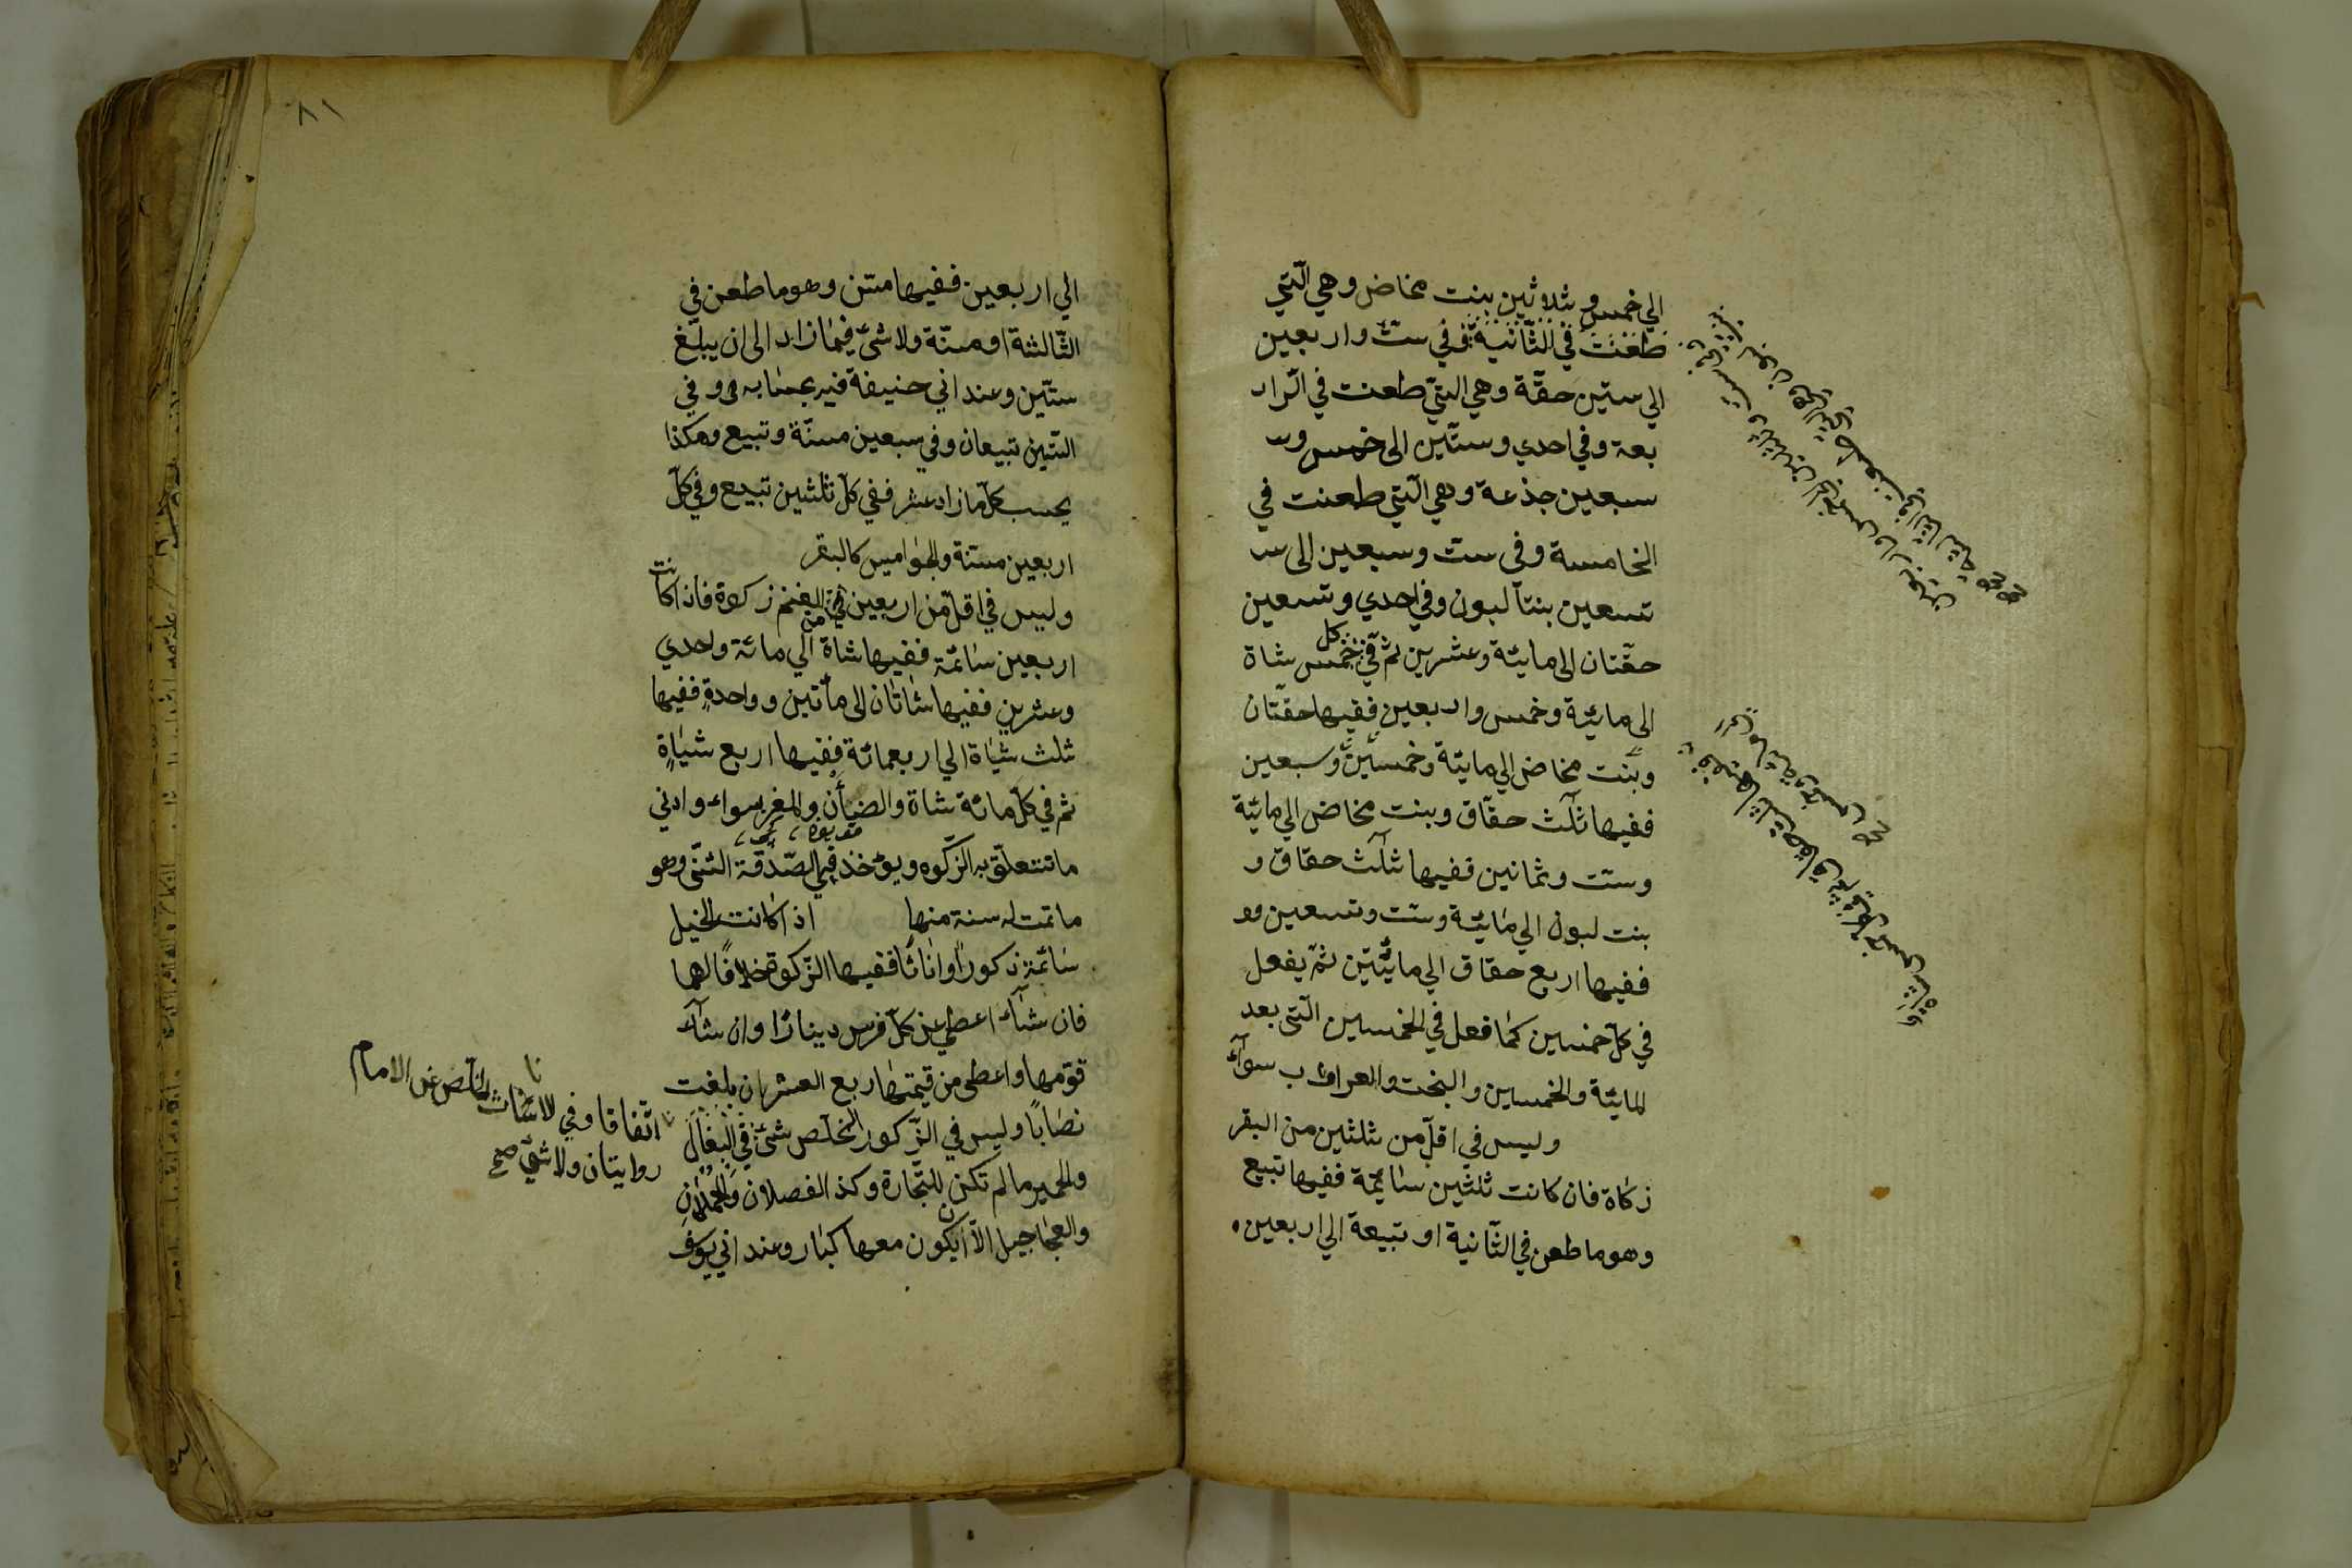 الي خمس و ثلاثين بنت مخاض وهي الّتي
طعنت في الثّانية وفي ستّ واربعين
الي ستين حقّة وهي التيّ طعنت في الرا
بعة وفي احدي وستّين الى خمس وسـ
سبعين جذعة وهي الّتي طعنت في
الخامسة وفي ستّ وسبعين الى سـ
تسعين بنتا لبون وفي احدي وتسعين
حقّتان الى مايئة وعشرين ثمّ في كل خمس شاة
الى مائية وخمس واربعين ففيها حقّتان
وبنت مخاض الي مايئة وخمسين وسبعين
ففيها ثلث حقّاق وبنت مخاض الي مائية
وستّ وثمانين ففيها ثلث حقاق و
بنت لبون الي مائية وستّ وتسعين
ففيها اربع حقاق الي مايئتين ثمّ يفعل
في كلّ خمسين كما فعل في الخمسين الّتي بعد
المايئة والخمسين والبخت والعراب سوآء
وليس في اقلّ من ثلثين من البقر
زكاة فان كانت ثلثين سايمة ففيها تبيع
وهو ما طعن في الثّانية او تبيعة الي اربعين
وفي ستّ وثلثين الى خمس واربعين
بنت لبون وهي الّتي طعنت في الثالثة صح
ففيها ثلث حقاق ثم في كل خمس شاة
الى مائة وخمس صح
٨١
الي اربعين ففيها مسّن وهو ما طعن في
الثّالثة او مسنّة ولا شئ فيما زاد الى ان يبلغ
ستّين وعند ابي حنيفة فيه بحسابه وفي
الستّين تبيعان وفي سبعين مسنّة وتبيع وهكذا
يحسب كلّما زاد عشر ففي كلّ ثلثين تبيع وفي كلّ
اربعين مسنة والجواميس كالبقر
وليس في اقلّ من اربعين من الغنم زكوة فاذا كانت
اربعين سائمة ففيها شاة الي مائة واحدي
وعشرين ففيها شاتان الى مأتين وواحدةٍ ففيها
ثلث شياة الي اربعمائة ففيها اربع شياةٍ
ثم في كلّ مائة شاة والضأن والمغز سواء وادني
ما تتعلّق به الزّكوه ويؤخذ في الصّدقة الثنّى وهو
ما تمت له سنة منها اذا كانت الخيل
سائمة ذكورًا واناثًا ففيها الزّكوة خلافًا لهما
فان شآء اعطي عن كلّ فرس دينارًا وان شآء
قوّمها واعطى من قيمتها ربع العشر ان بلغت
نصابًا وليس في الذّكور الخلّص شئ في البغال
والحمير ما لم تكن للتّجارة وكذ الفصلان والحملان
والعجاجيل الاّ ان يكون معها كبار وعند ابي يوسف
اتّفاقا وفي الاناث الخلّص عن الامام
روايتان ولا شئ صح